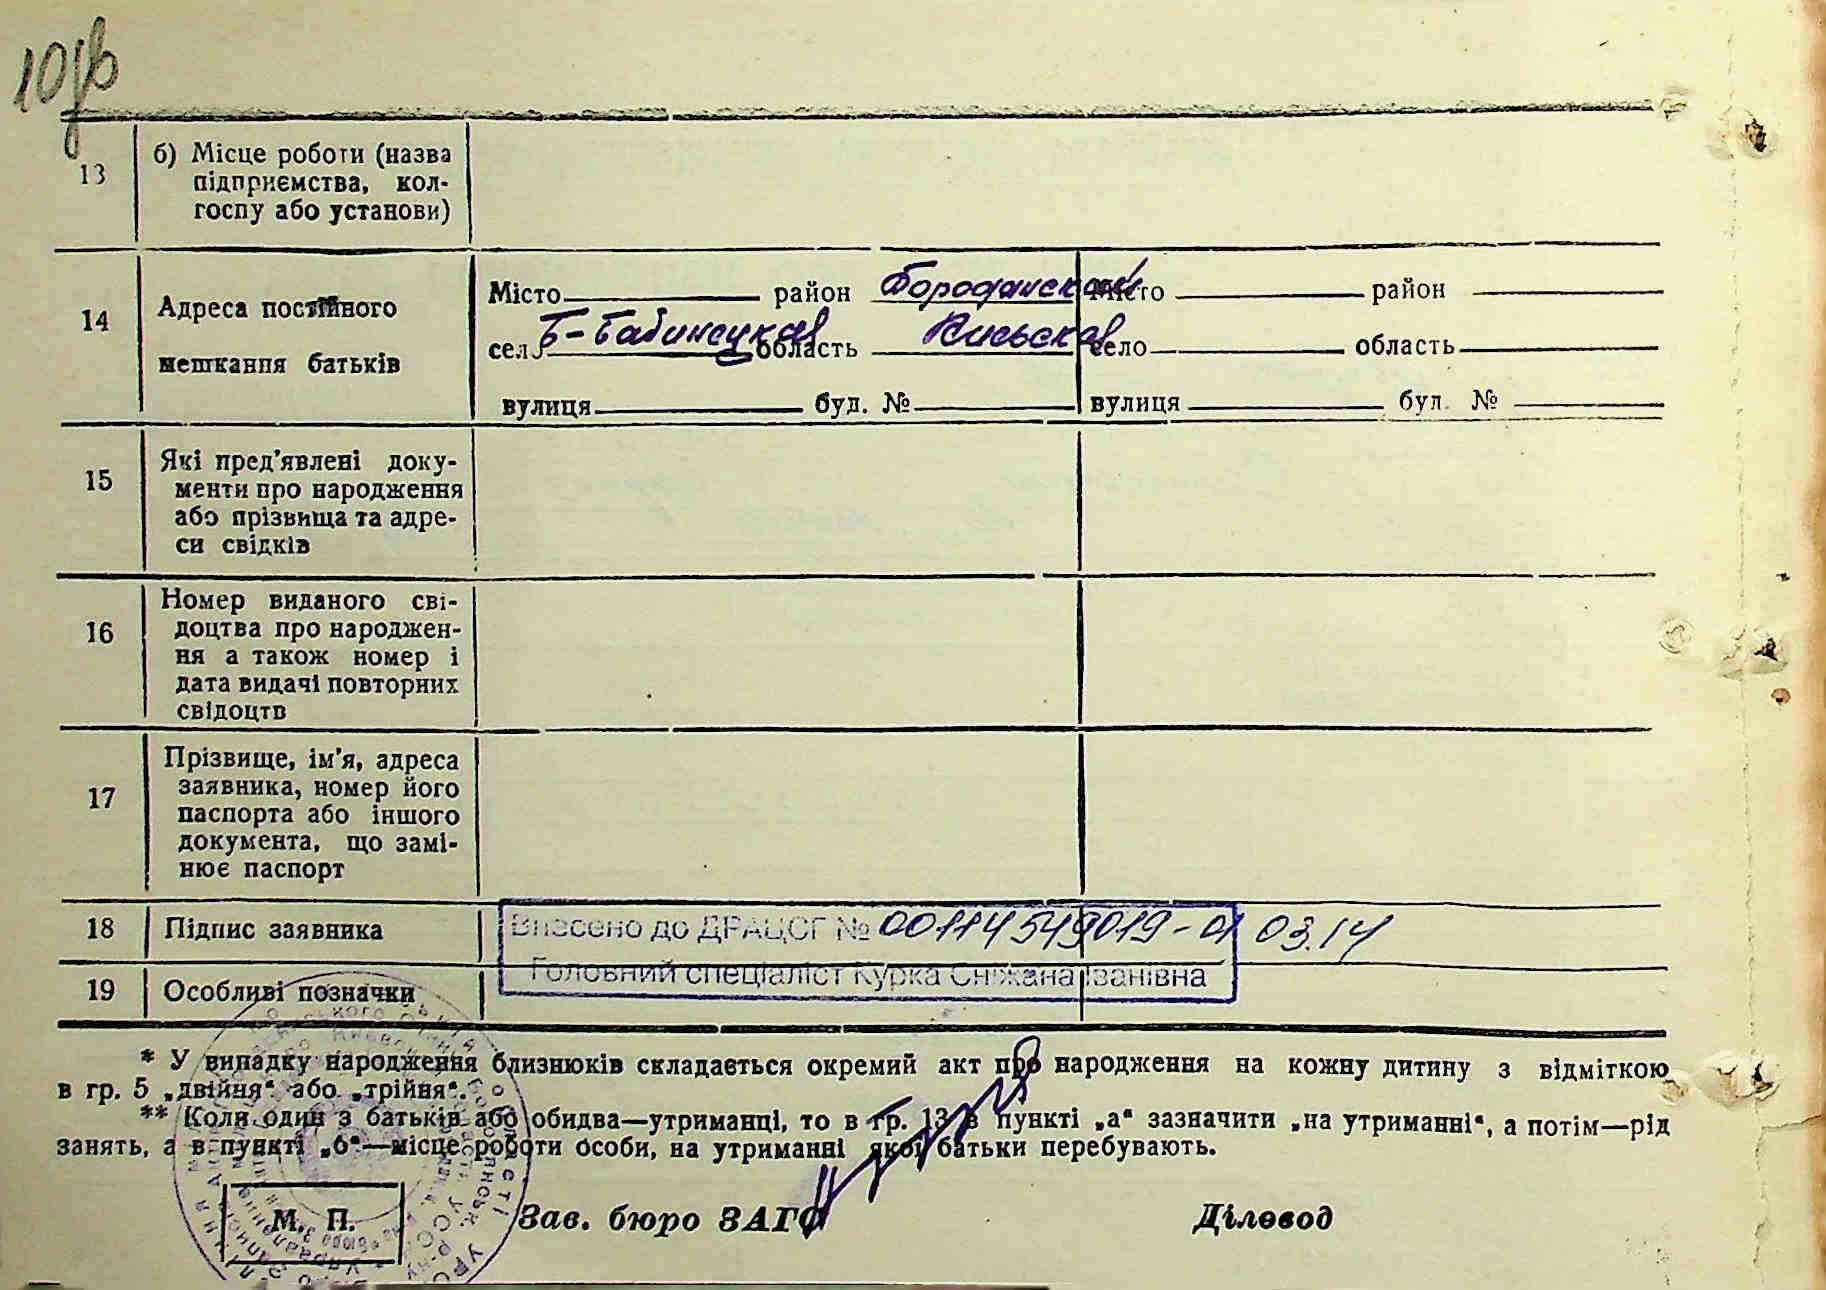 13
б) Місце роботи (назва
підприємства, кол-
госпу або установи)
14
Адреса постійного
мешкання батьків
Місто район Бородянский Місто район
село Б-Бабинецкая область Киевская село область
вулиця буд. № вулиця буд. №
15
Які пред'явлені доку-
менти про народження
або прізвища та адре-
си свідків
16
Номер виданого сві-
доцтва про народжен-
ня а також номер і
дата видачі повторних
свідоцтв
17
Прізвище, ім'я, адреса
заявника, номер його
паспорта або іншого
документа, що замі-
нює паспорт
18 Підпис заявника
Внесено до ДРАЦСГ № 00114549019-01 03.14
Головний спеціаліст Курка Сніжана Іванівна
19 Особливі позначки
* У випадку народження близнюків складається окремий акт про народження на кожну дитину з відміткою
в гр. 5 „двійня“ або „трійня“.
** Коли один з батьків або обидва—утриманці, то в гр. 13 в пункті „а“ зазначити „на утриманні“, а потім—рід
занять, а в пункті „б“—місце роботи особи, на утриманні якої батьки перебувають.
М. П. Зав. бюро ЗАГС Діловод